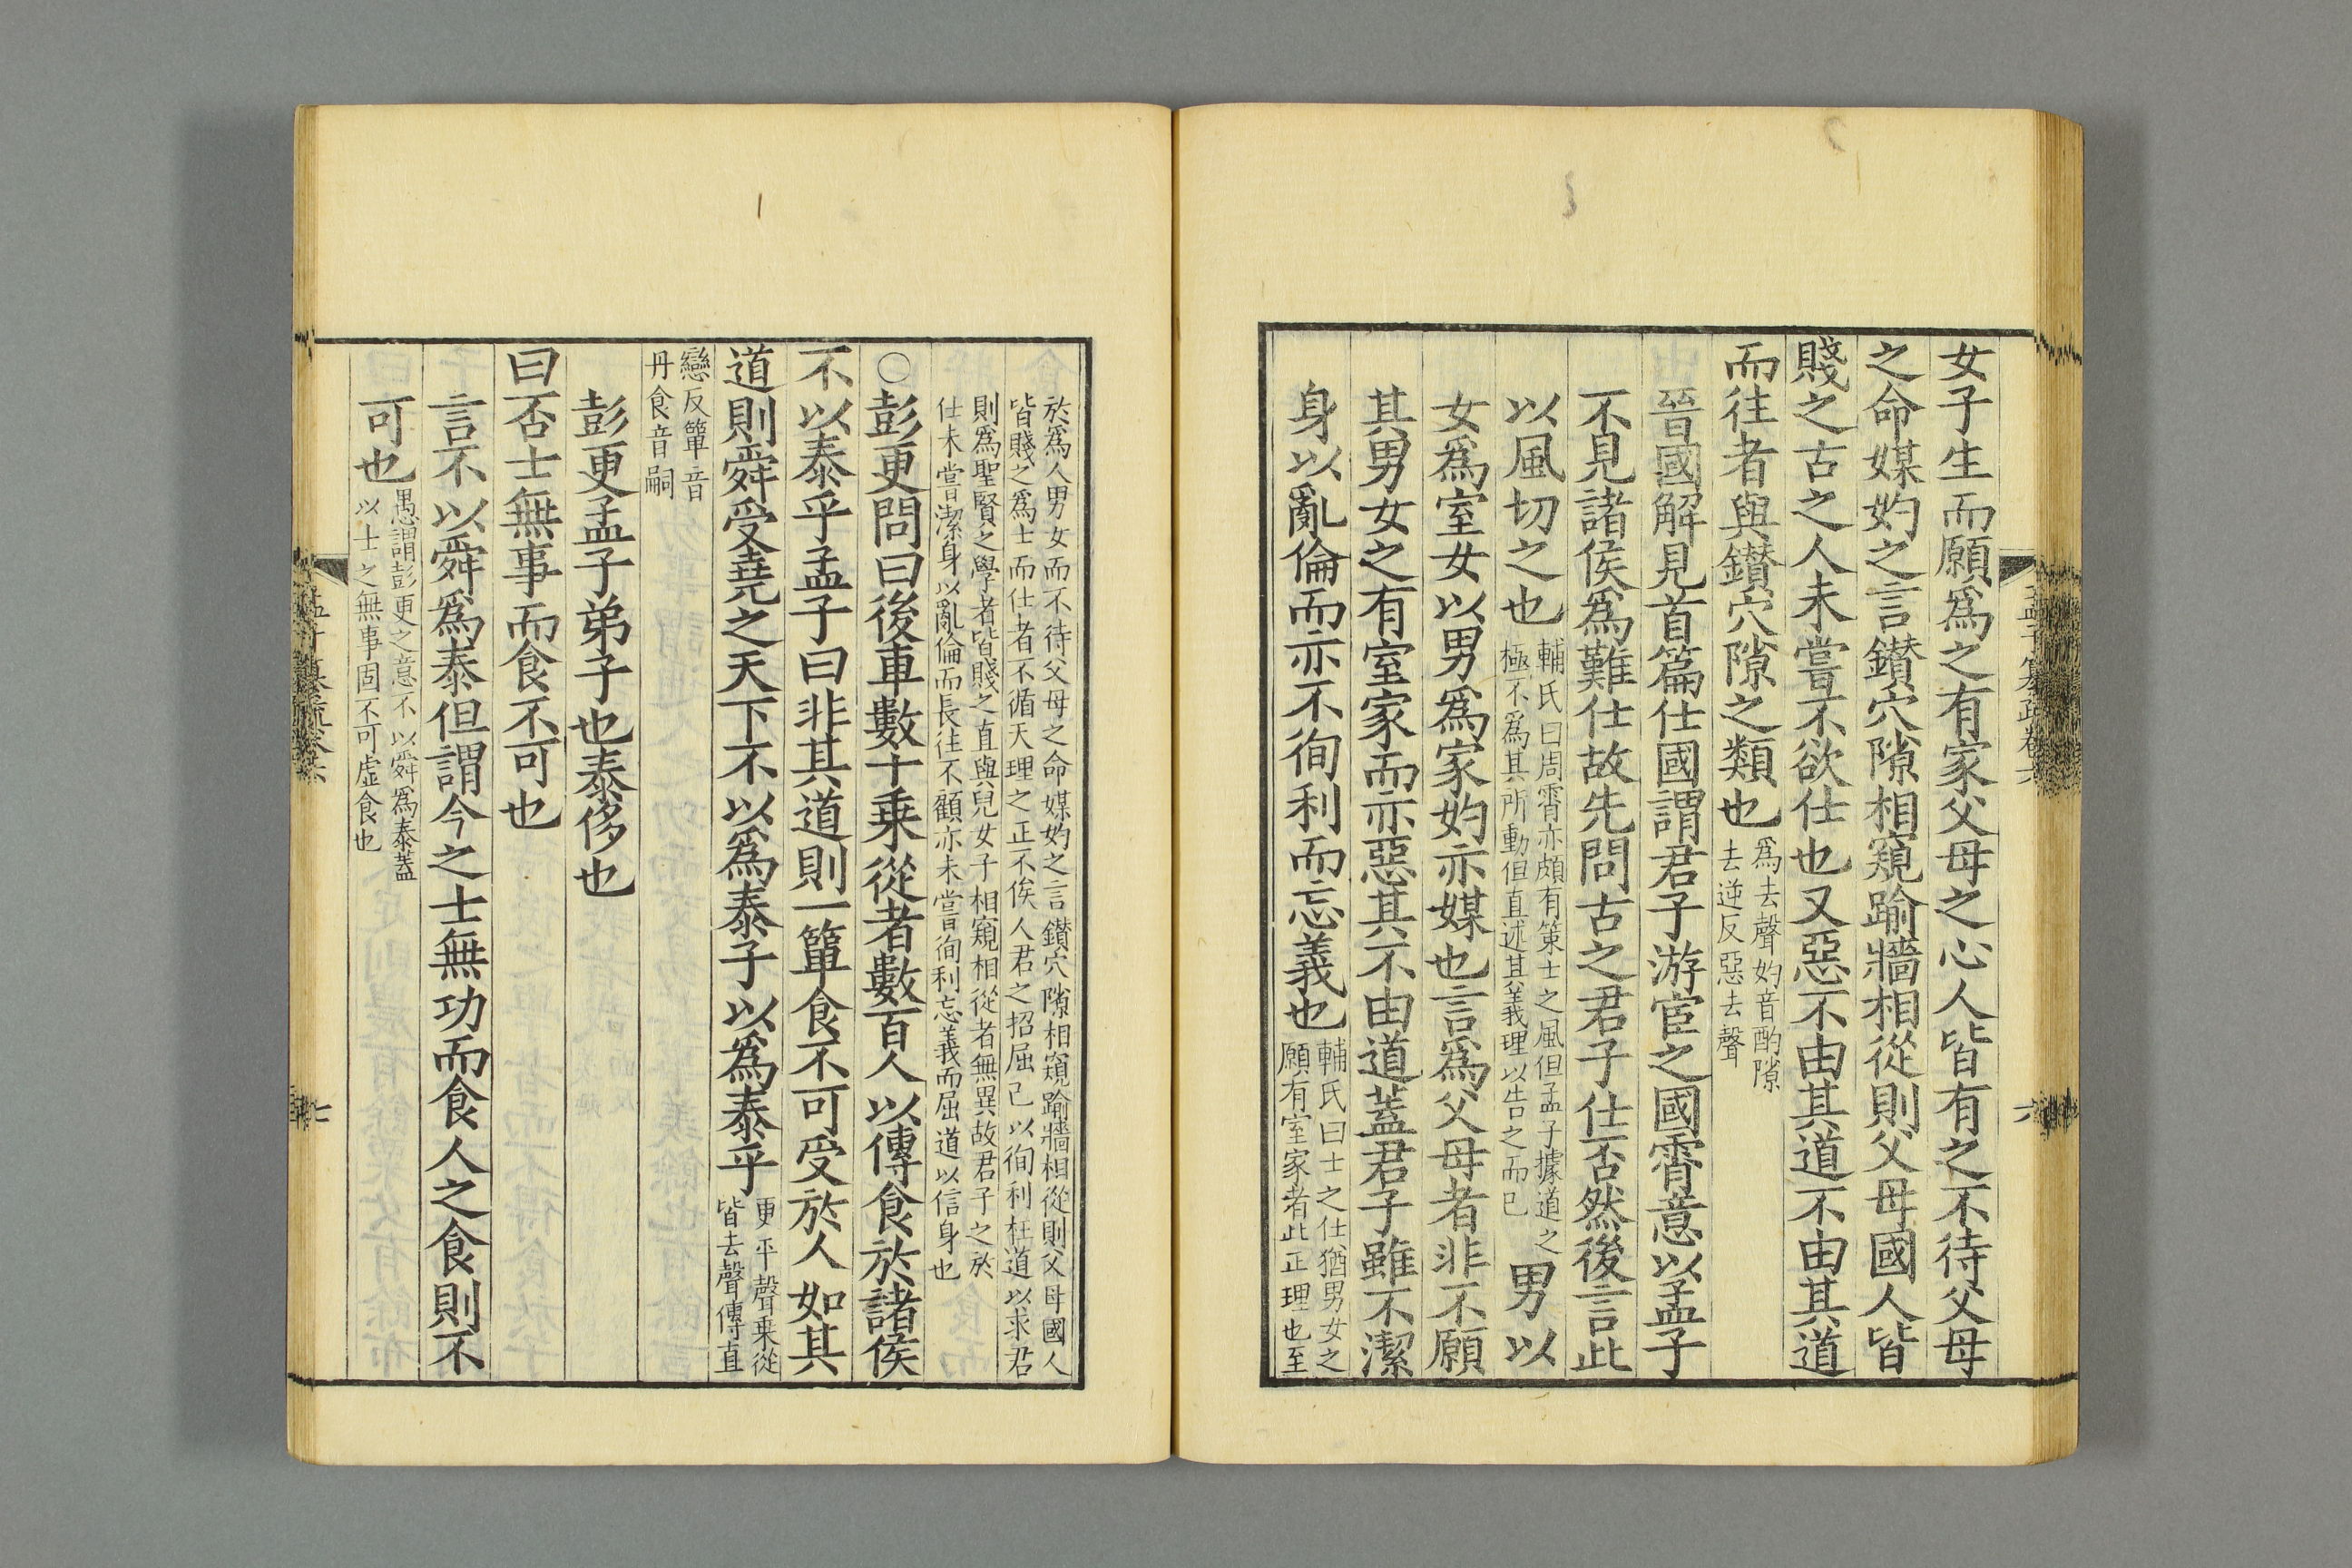 女子生而願爲之有家父母之心人皆有之不待父母
之命媒妁之言鑚穴隙相窺踰牆相從則父母國人皆
賤之古之人未嘗不欲仕也又惡不由其道不由其道
而徃者與鑚穴隙之類也爲去聲妁音酌隙
去逆反惡去聲
晉國解見首篇仕國謂君子游宦之國霄意以孟子
不見諸侯爲難仕故先問古之君子仕否然後言此
以風切之也輔氏曰周霄亦頗有策士之風但孟子據道之
極不爲其所動但直述其義理以告之而已男以
女爲室女以男爲家妁亦媒也言爲父母者非不願
其男女之有室家而亦惡其不由道蓋君子雖不潔
身以亂倫而亦不徇利而忘義也輔氏曰士之仕猶男女之
願有室家者此正理也至
孟子纂疏卷六
六
於爲人男女而不待父母之命媒妁之言鑚穴隙相窺踰牆相從則父母國人
皆賤之爲士而仕者不循天理之正不俟人君之招屈己以徇利枉道以求君
則爲聖賢之學者皆賤之直與兒女子相窺相從者無異故君子之於
仕未嘗潔身以亂倫而長往不顧亦未嘗徇利忘義而屈道以信身也
○彭更問曰後車數十乗從者數百人以傳食於諸侯
不以泰乎孟子曰非其道則一簞食不可受於人如其
道則舜受堯之天下不以爲泰子以爲泰乎更平聲乗從
皆去聲傳直
戀反簞音
丹食音嗣
彭更孟子弟子也泰侈也
曰否士無事而食不可也
言不以舜爲泰但謂今之士無功而食人之食則不
可也愚謂彭更之意不以舜爲泰蓋
以士之無事固不可虛食也
孟子纂疏卷六
七